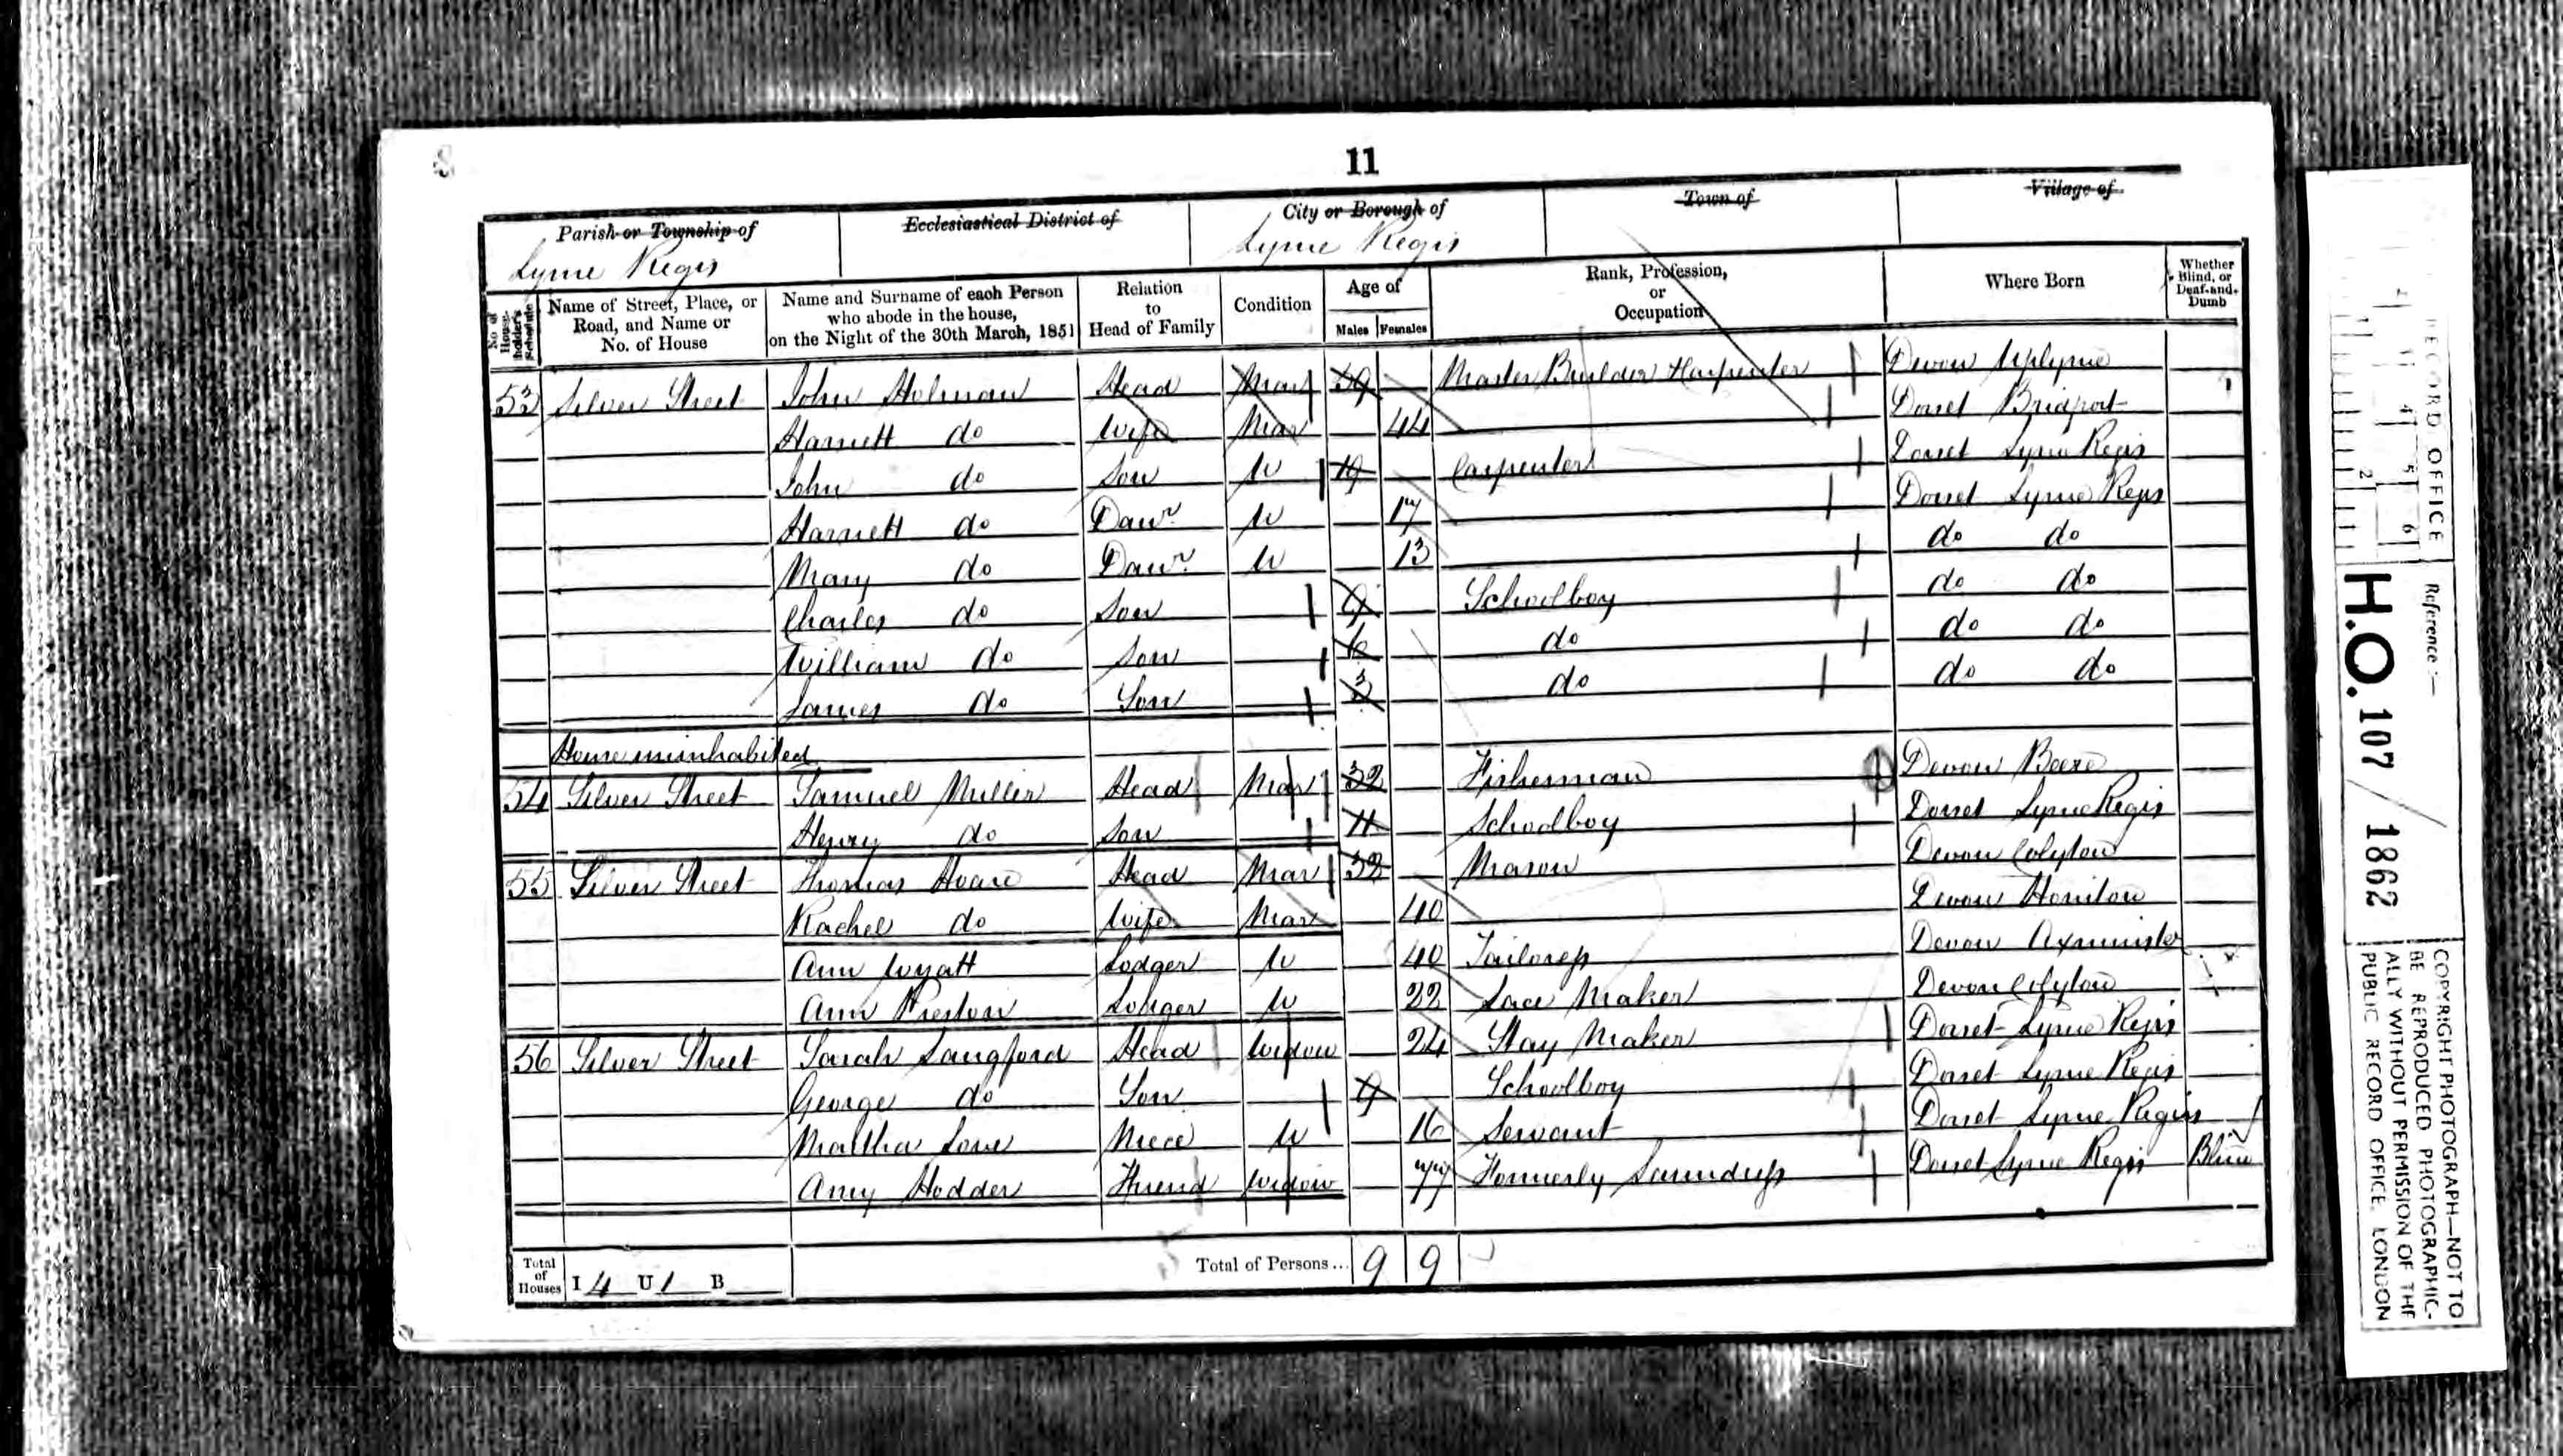 11
Parish or Township of
Ecclesiastical District of
City or Borough of
Town of
Village of
Lyme Regis
Lyme Regis
No. of House-holder's Schedule
Name of Street, Place, or Road, and Name or No. of House
Name and Surname of each Person who abode in the house, on the Night of the 30th March, 1851
Relation to Head of Family
Condition
Age of
Males Females
Rank, Profession, or Occupation
Where Born
Whether Blind, or Deaf-and-Dumb
53 Silver Street John Holman Head Mar 59 Master Builder Carpenter Devon Uplyme
Harriett do Wife Mar 44 Dorset Bridport
John do Son U 19 Carpenter Dorset Lyme Regis
Harriett do Dawr U 17 Dorset Lyme Regis
Mary do Dawr U 13 do do
Charles do Son 9 Schoolboy do do
William do Son 6 do do do
James do Son 3 do do do
House uninhabited
54 Silver Street Samuel Miller Head Mar 32 Fisherman Devon Beere
Henry do Son 11 Schoolboy Dorset Lyme Regis
55 Silver Street Thomas Hoare Head Mar 32 Mason Devon Colyton
Rachel do Wife Mar 40 Devon Honiton
Ann Wyatt Lodger U 40 Tailoress Devon Axminster
Ann Preston Lodger U 22 Lace Maker Devon Colyton
56 Silver Street Sarah Langford Head Widow 24 Stay Maker Dorset Lyme Regis
George do Son 9 Schoolboy Dorset Lyme Regis
Martha Love Niece U 16 Servant Dorset Lyme Regis
Amy Hodder Friend Widow 77 Formerly Laundress Dorset Lyme Regis Blind
Total of Houses I 4 U 1 B
Total of Persons... 9 9
RECORD OFFICE
Reference :—
H.O. 107 / 1862
COPYRIGHT PHOTOGRAPH—NOT TO
BE REPRODUCED PHOTOGRAPHIC-
ALLY WITHOUT PERMISSION OF THE
PUBLIC RECORD OFFICE, LONDON